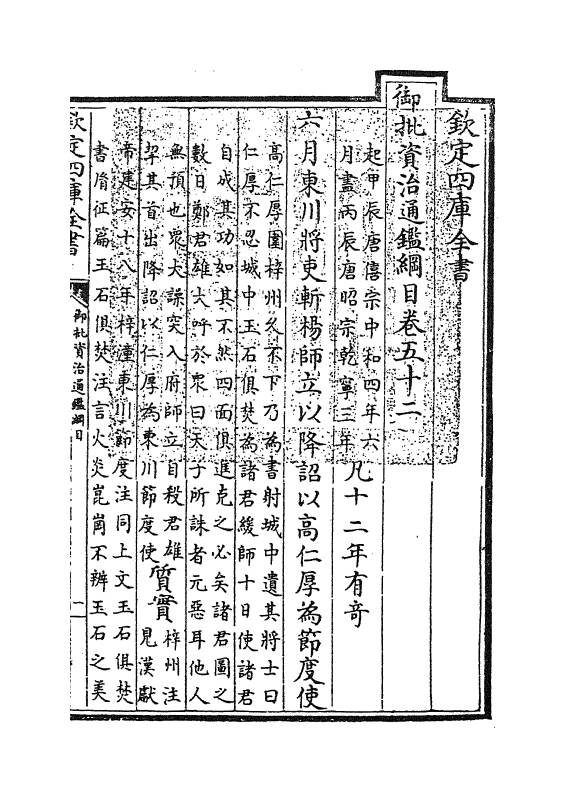 欽定四庫全書
御批資治通鑑綱目卷五十二
起甲辰唐僖宗中和四年六
月盡丙辰唐昭宗乾寧三年
凡十二年有奇
六月東川將吏斬楊師立以降詔以高仁厚為節度使
高仁厚圍梓州久不下乃為書射城中遺其將士曰
仁厚不忍城中玉石俱焚為諸君緩師十日使諸君
自成其功如其不然四面俱進克之必矣諸君圖之
數日鄭君雄大呼於眾曰天子所誅者元惡耳他人
無預也眾大譟突入府師立自殺君雄
挈其首出降詔以仁厚為東川節度使
質實
梓州注
見漢獻
帝建安十八年梓潼東川節度注同上文玉石俱焚
書胤征篇玉石俱焚注言火炎崑崗不辨玉石之美
欽定四庫全書
御批資治通鑑綱目
一